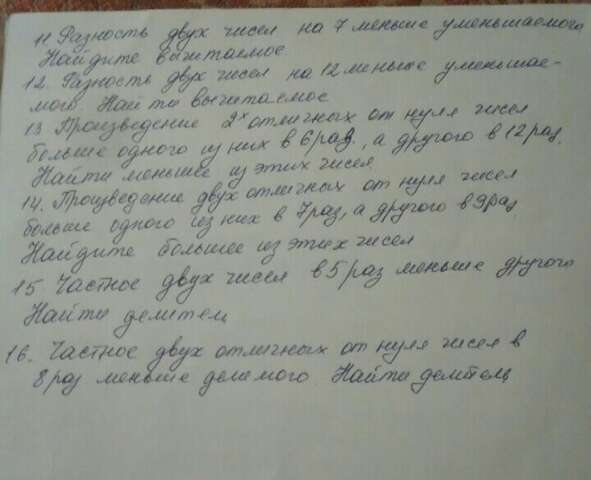 11 Разность двух чисел на 7 меньше уменьшаемого
Найдите вычитаемое.
12. Разность двух чисел на 12 меньше уменьшае-
мого. Найти вычитаемое
13 Произведение 2х отличных от нуля чисел
больше одного из них в 6 раз, а другого в 12 раз.
Найти меньшее из этих чисел.
14. Произведение двух отличных от нуля чисел
больше одного из них в 7 раз, а другого в 9 раз
Найдите большее из этих чисел
15. Частное двух чисел в 5 раз меньше другого
Найти делител
16. Частное двух отличных от нуля чисел в
8 раз меньше делемого Найти делитель